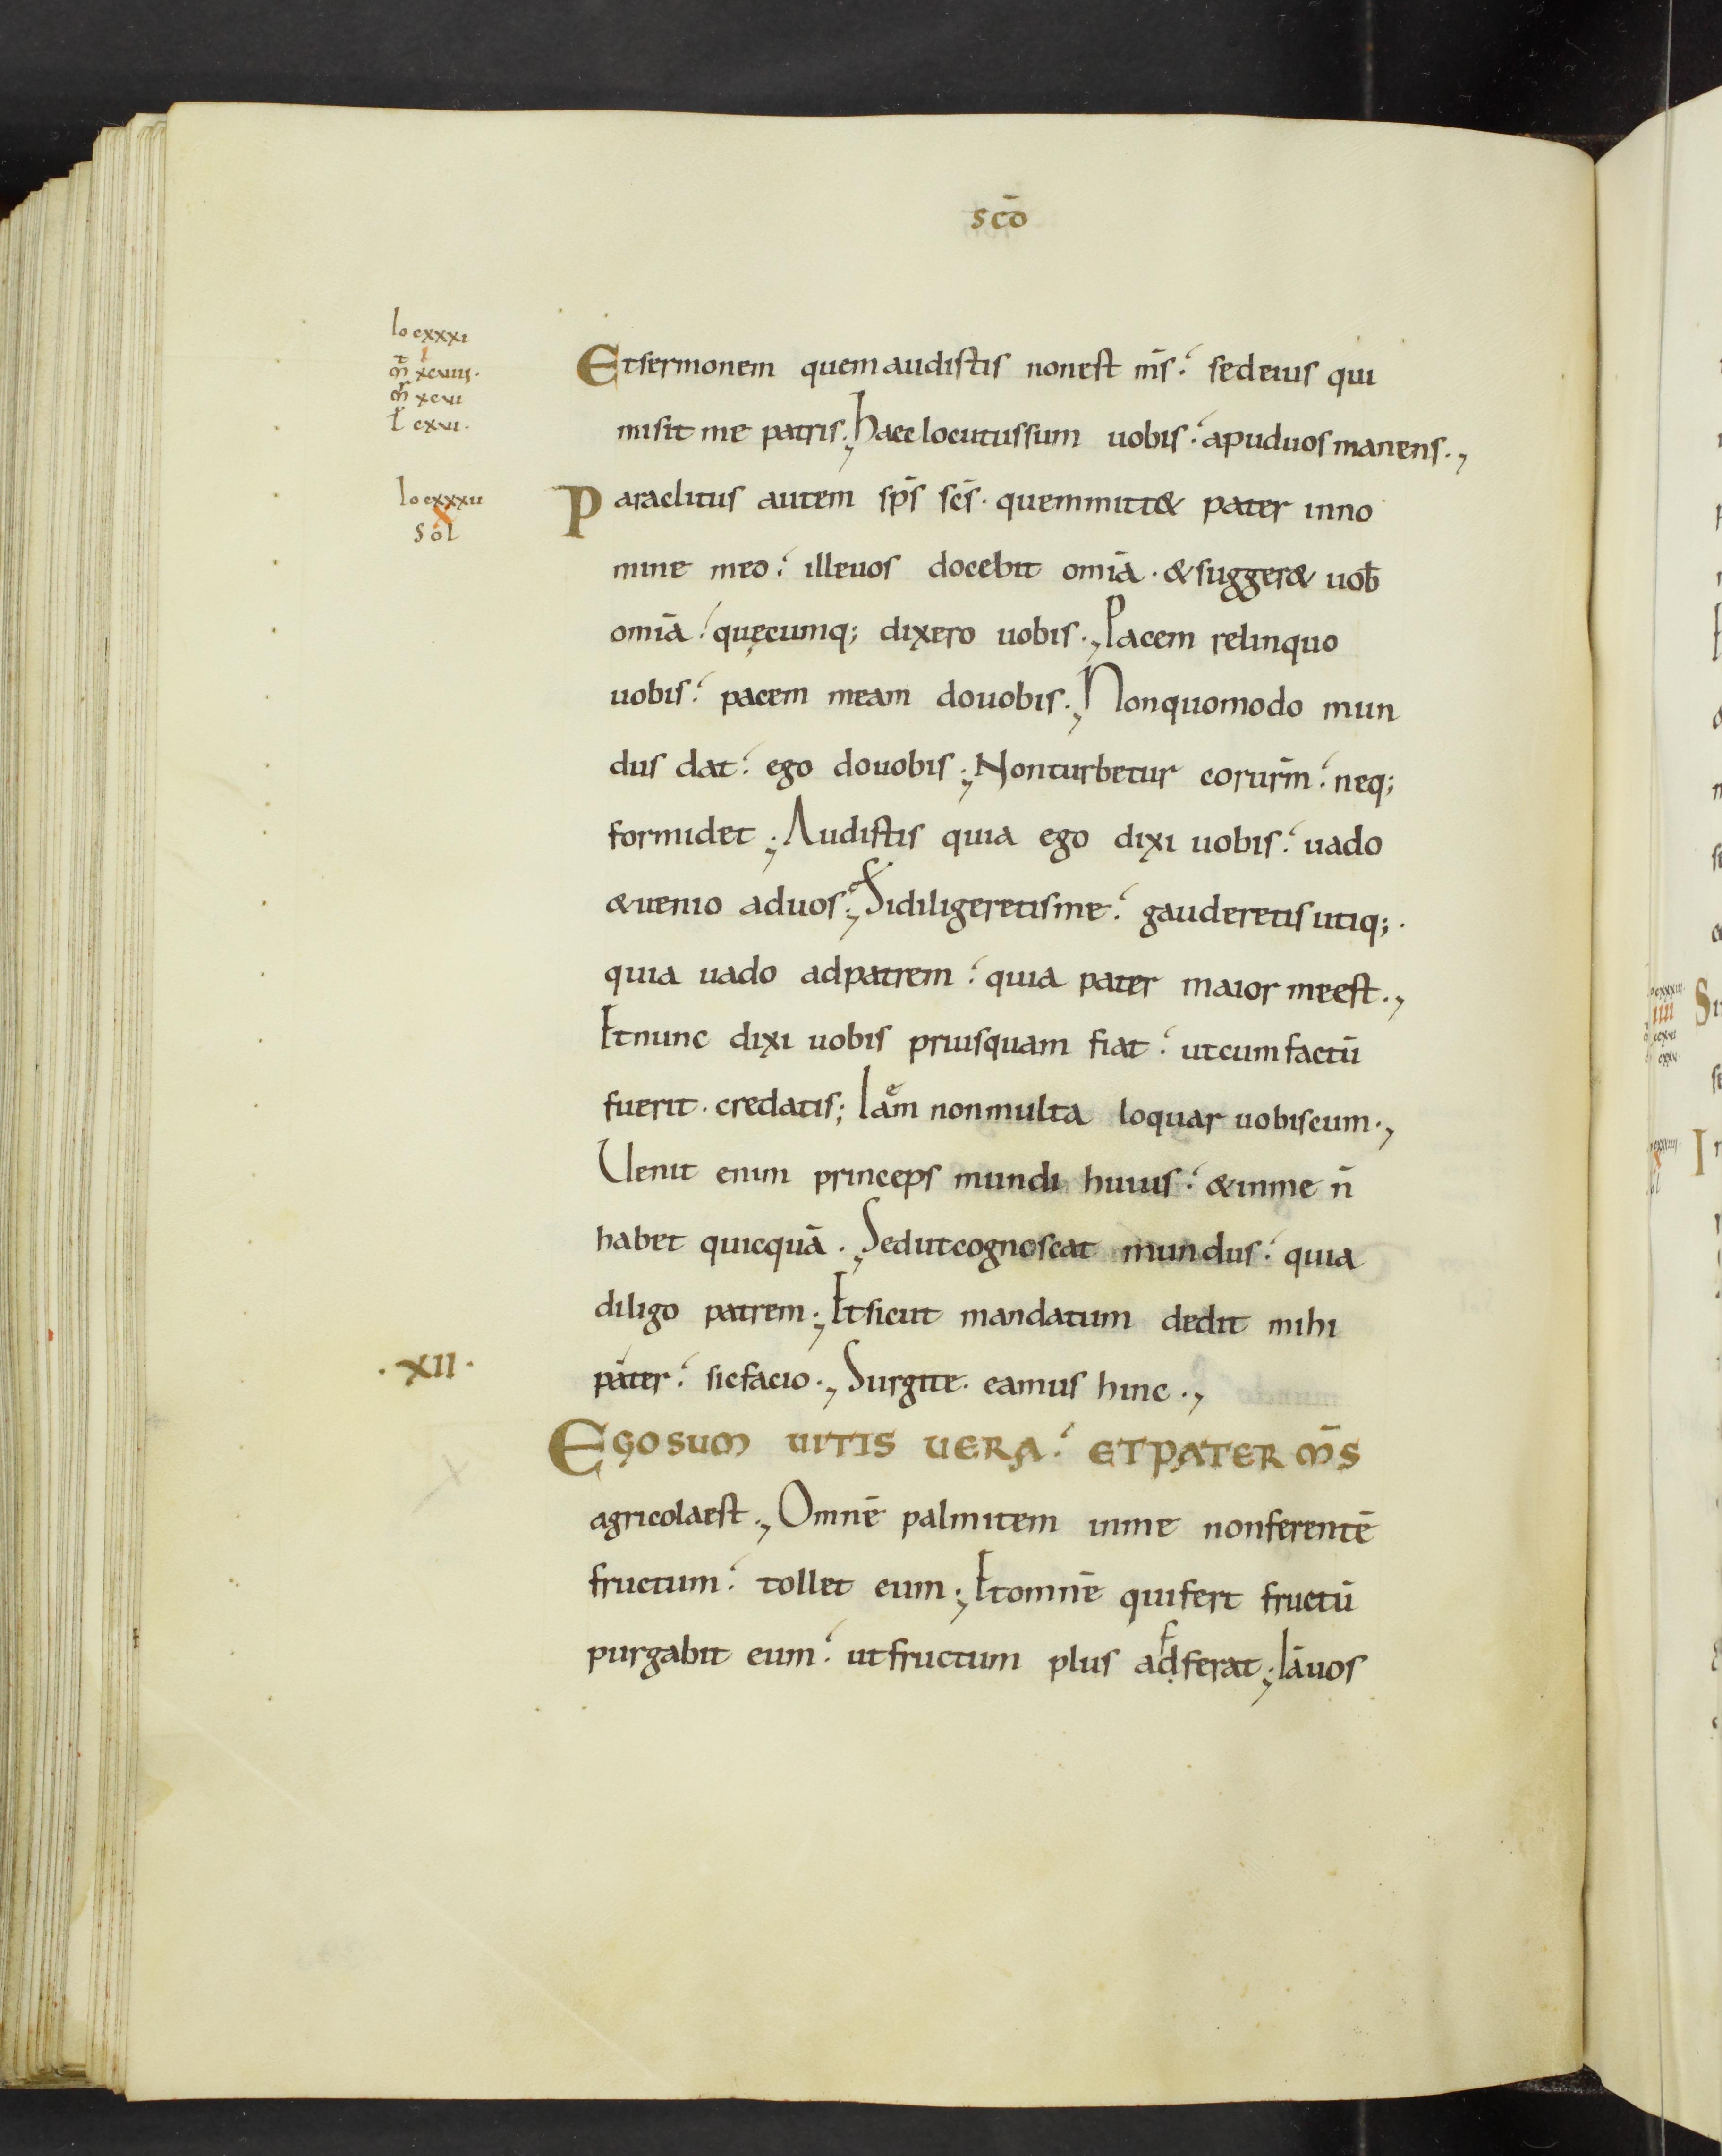 scō
Io cxxxi
i
mt xcviiii.
mr xcvi
L cxvi.
Etsermonem quemaudistis nonest m̄s. sedeius qui
misit me patris. haec locutussum uobis. apuduosmanens.,
Io cxxxii
X
Sol
Paraclitus autem sp̄s sc̄s. quemmitt& pater inno
mine meo. illeuos docebit omīa. &sugger& uob̄
omīa. quęcumq; dixero uobis., Pacem relinquo
uobis. pacem meam douobis., Nonquomodo mun
dus dat. ego douobis., Nonturbetur corur̄m. neq;
formidet., Audistis quia ego dixi uobis. uado
&uenio aduos., Sidiligeretisme. gauderetisutiq;.
quia uado adpatrem. quia pater maior meest.,
Etnunc dixi uobis priusquam fiat. utcumfactū
fuerit. credatis; Iam nonmulta loquar uobiscum.,
Uenit enim princeps mundi huius. &inme n̄
habet quicquā., Sedutcognoscat mundus. quia
diligo patrem., Etsicut mandatum dedit mihi
pater. sicfacio., Surgite. eamus hinc.,
.XII.
EGOSUM UITIS UERA. ETPATER M̄S
agricolaest., Omnē palmitem inme nonferentē
fructum. tollet eum., Etomnē quifert fructū
purgabit eum. utfructum plus adferat., Iāuos